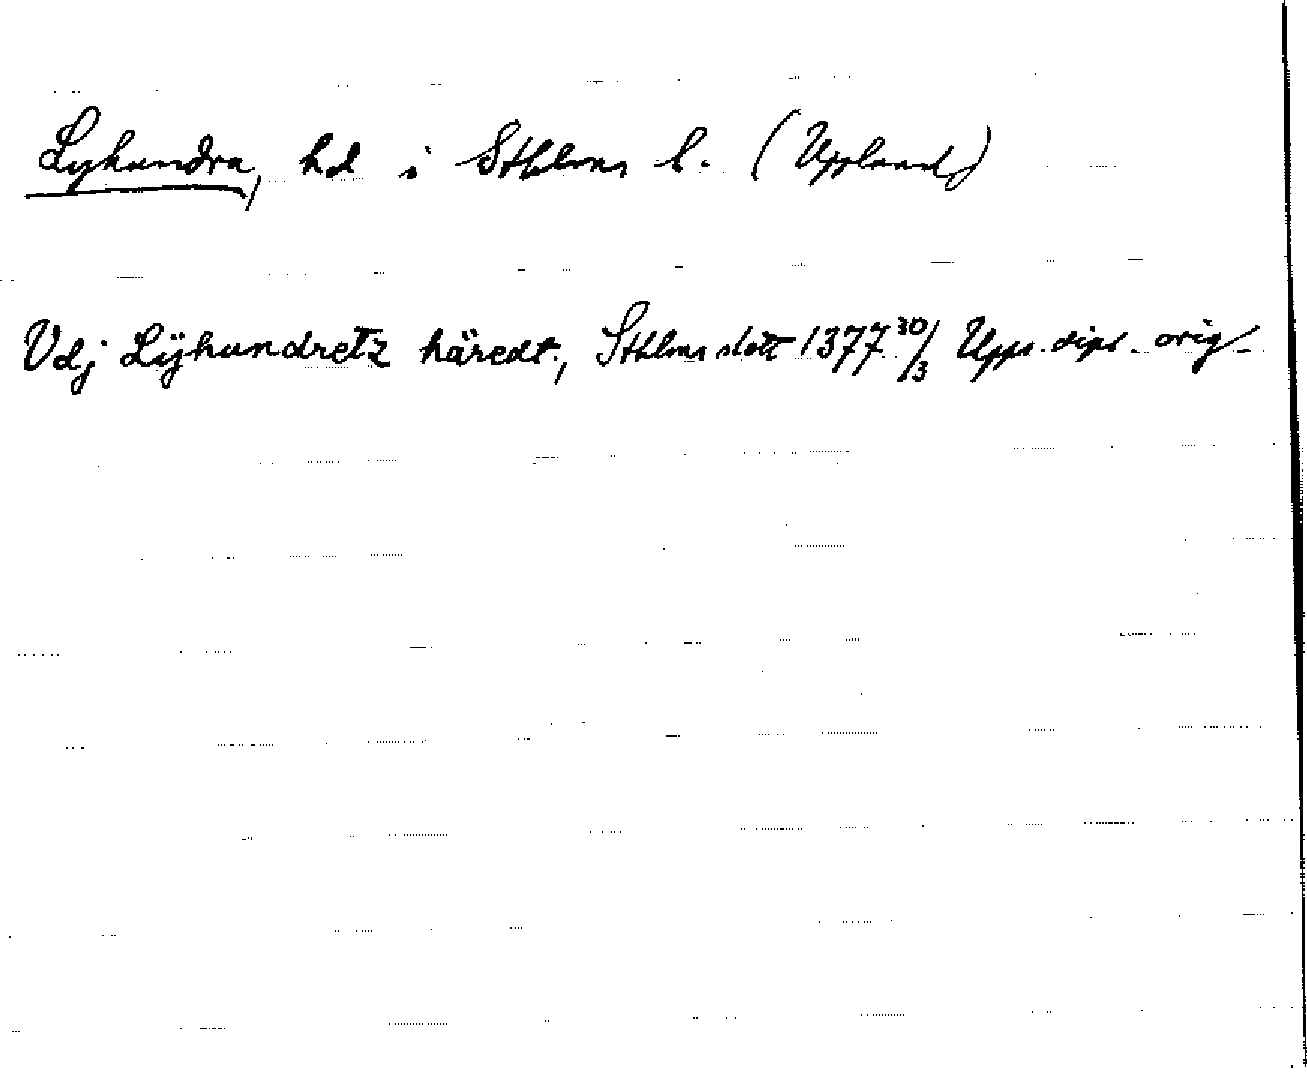 Lyhundra, hd i Sthlms l. (Uppland)
Vdj Lÿhundretz häredt., Sthlms slott 1377 30/3 Upps. dipl. orig.